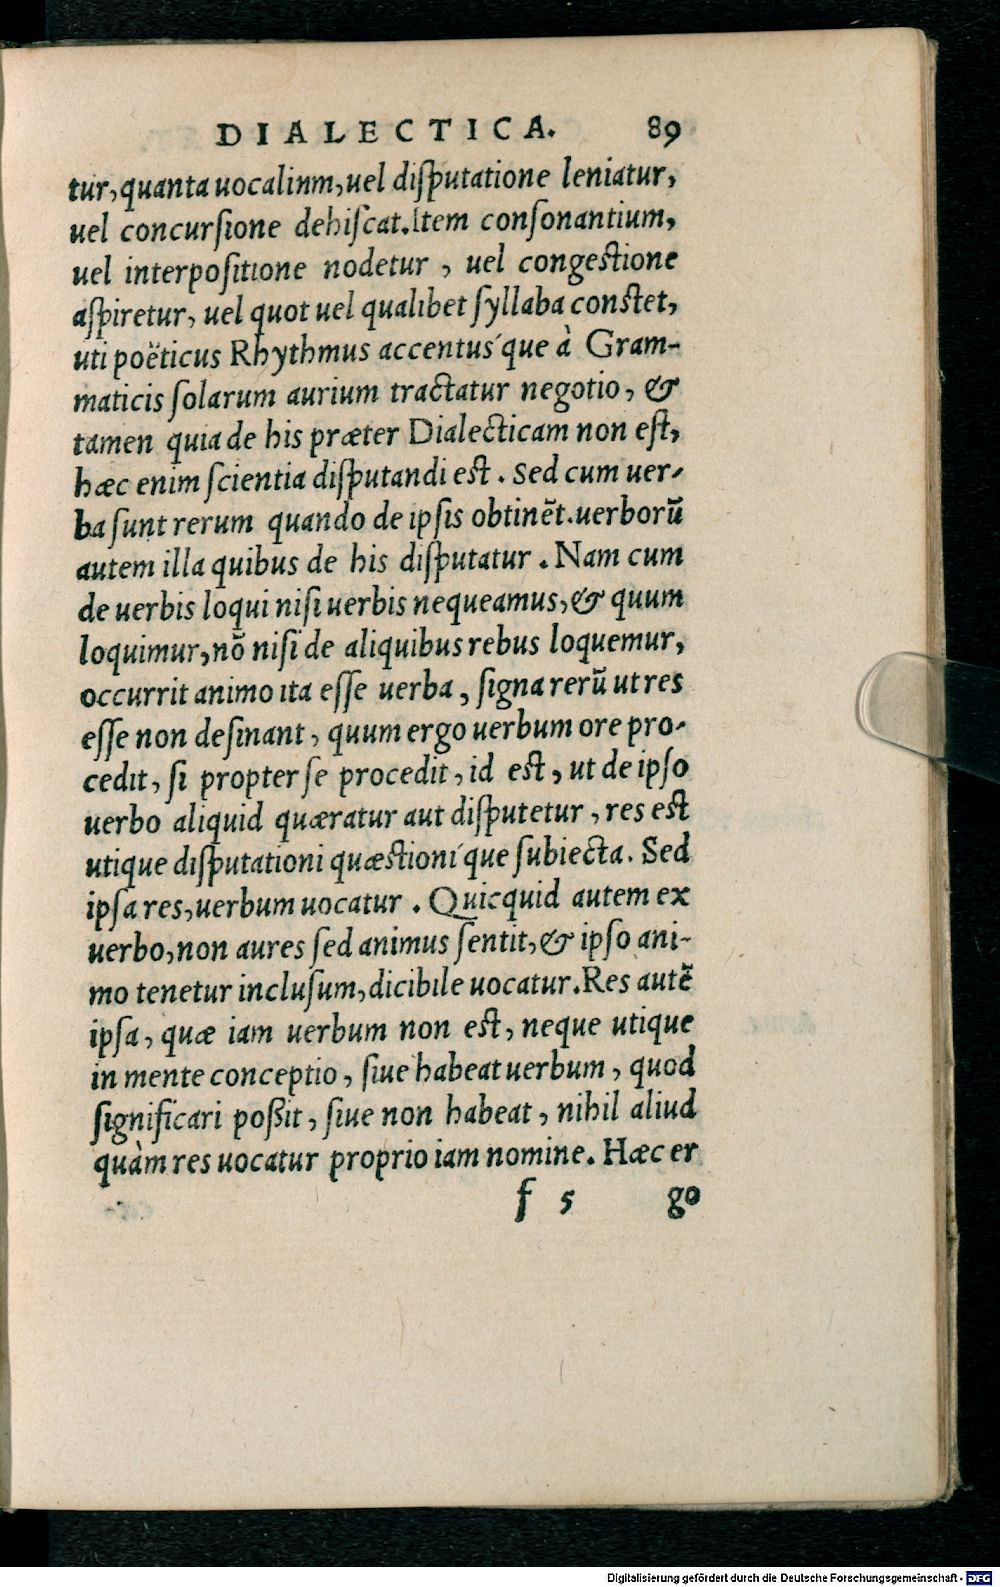 DIALECTICA. 89
tur, quanta uocalinm, uel diſputatione leniatur,
uel concurſione dehiſcat. Item conſonantium,
uel interpoſitione nodetur, uel congeſtione
aſpiretur, uel quot uel qualibet ſyllaba conſtet,
uti poëticus Rhythmus accentus´que à Gram-
maticis ſolarum aurium tractatur negotio, &
tamen quia de his præter Dialecticam non eſt,
hæc enim ſcientia diſputandi eſt. Sed cum uer-
ba ſunt rerum quando de ipſis obtinẽt. uerborũ
autem illa quibus de his diſputatur. Nam cum
de uerbis loqui niſi uerbis nequeamus, & quum
loquimur, nõ niſi de aliquibus rebus loquemur,
occurrit animo ita eſſe uerba, ſigna rerũ ut res
eſſe non deſinant, quum ergo uerbum ore pro-
cedit, ſi propter ſe procedit, id eſt, ut de ipſo
uerbo aliquid quæratur aut diſputetur, res eſt
utique diſputationi quæſtioni´que ſubiecta. Sed
ipſa res, uerbum uocatur. Quicquid autem ex
uerbo, non aures ſed animus ſentit, & ipſo ani-
mo tenetur incluſum, dicibile uocatur. Res autẽ
ipſa, quæ iam uerbum non eſt, neque utique
in mente conceptio, ſiue habeat uerbum, quod
ſignificari poßit, ſiue non habeat, nihil aliud
quàm res uocatur proprio iam nomine. Hæc er
f 5 go
Digitalisierung gefördert durch die Deutsche Forschungsgemeinschaft - DFG